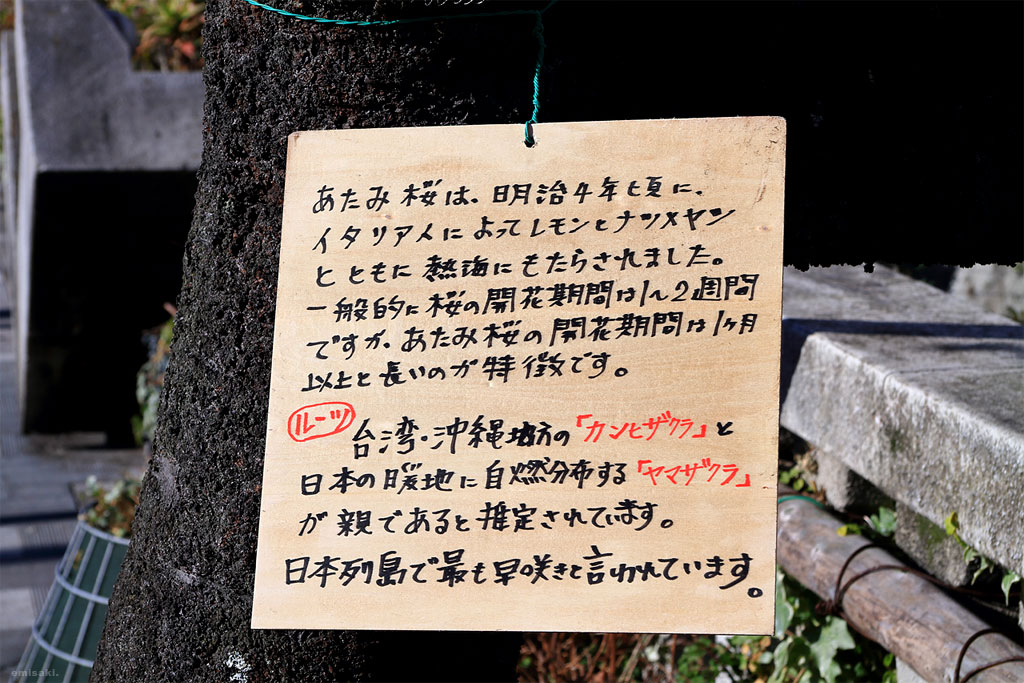 あたみ桜は、明治4年頃に、
イタリア人によってレモンとナツメヤシ
とともに熱海にもたらされました。
一般的に桜の開花期間は1～2週間
ですが、あたみ桜の開花期間は1ヶ月
以上と長いのが特徴です。
ルーツ 台湾・沖縄地方の「カンヒザクラ」と
日本の暖地に自燃分布する「ヤマザクラ」
が親であると推定されています。
日本列島で最も早咲きと言われています。
emisaki.